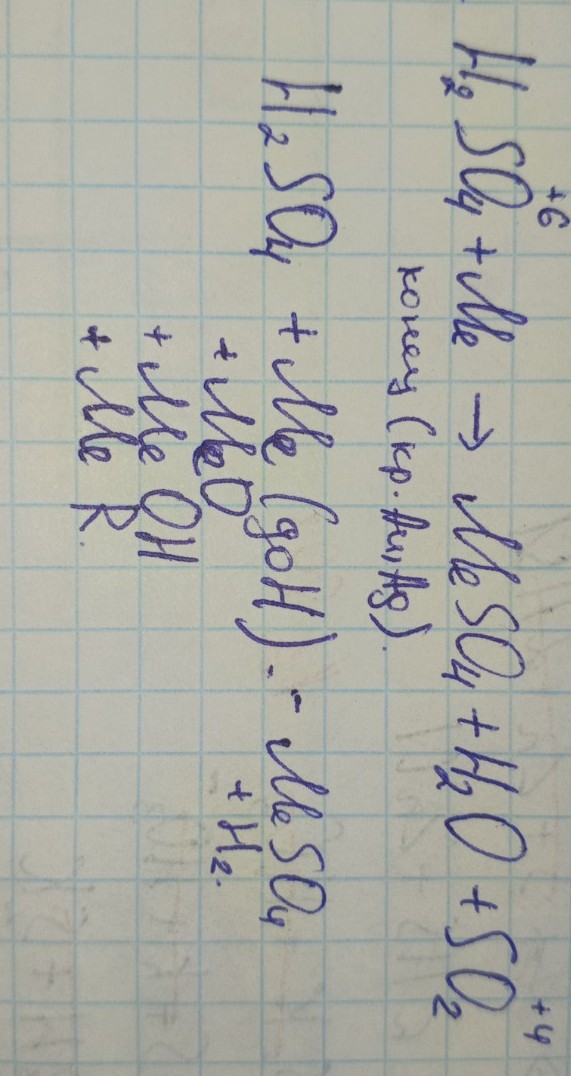 +6 +4
H₂SO₄ + Me → MeSO₄ + H₂O + SO₂
конец (кр. Au, Ag).
H₂SO₄ + Me (до H) - - MeSO₄
+ MeO + H₂.
+ Me OH
+ Me R.